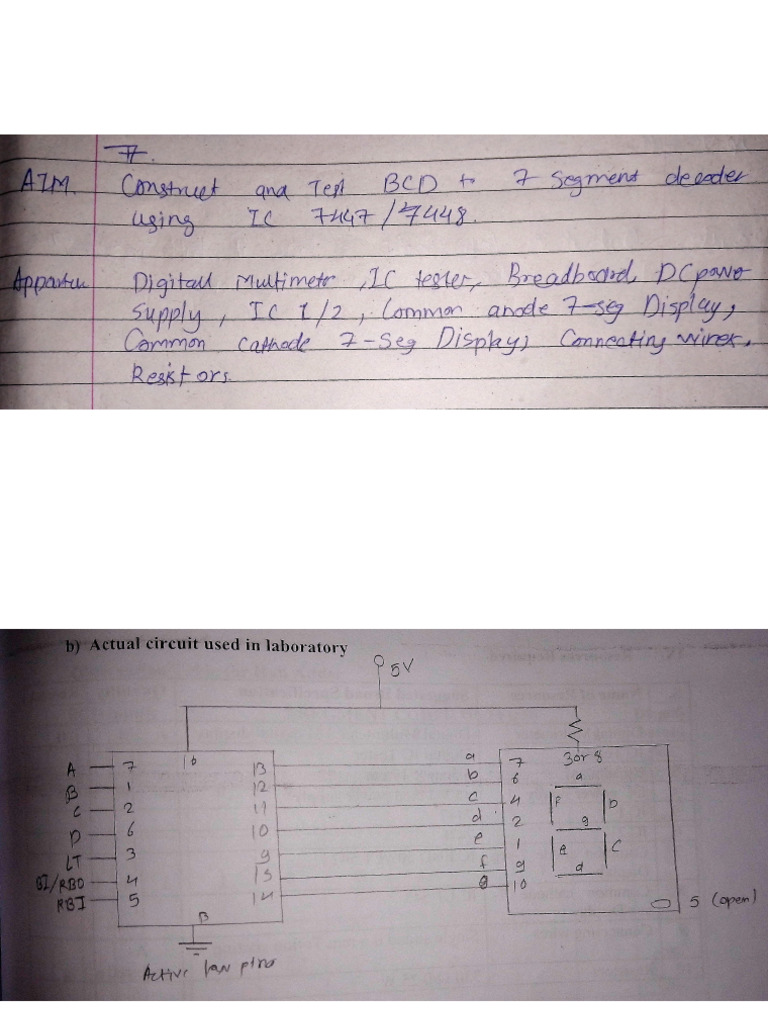 7.
AIM. Construct and Test BCD to 7 segment decoder
using IC 7447/7448.
Digital Multimetr, IC tester, Breadboard, DC
Supply, IC 1/2, Common anode 7-seg Display,
Common Cathode 7-Seg Display, Connecting wires,
Resistors.
b) Actual circuit used in laboratory
5V
A 7 16 13 a 7 3 or 8
B 1 12 b 6 a
C 2 11 c 4 f b
D 6 10 d 2 g
LT 3 9 e 1 e c
BI/RBO 4 15 f 9 d
RBI 5 14 g 10 5 (open)
8
Active low pins